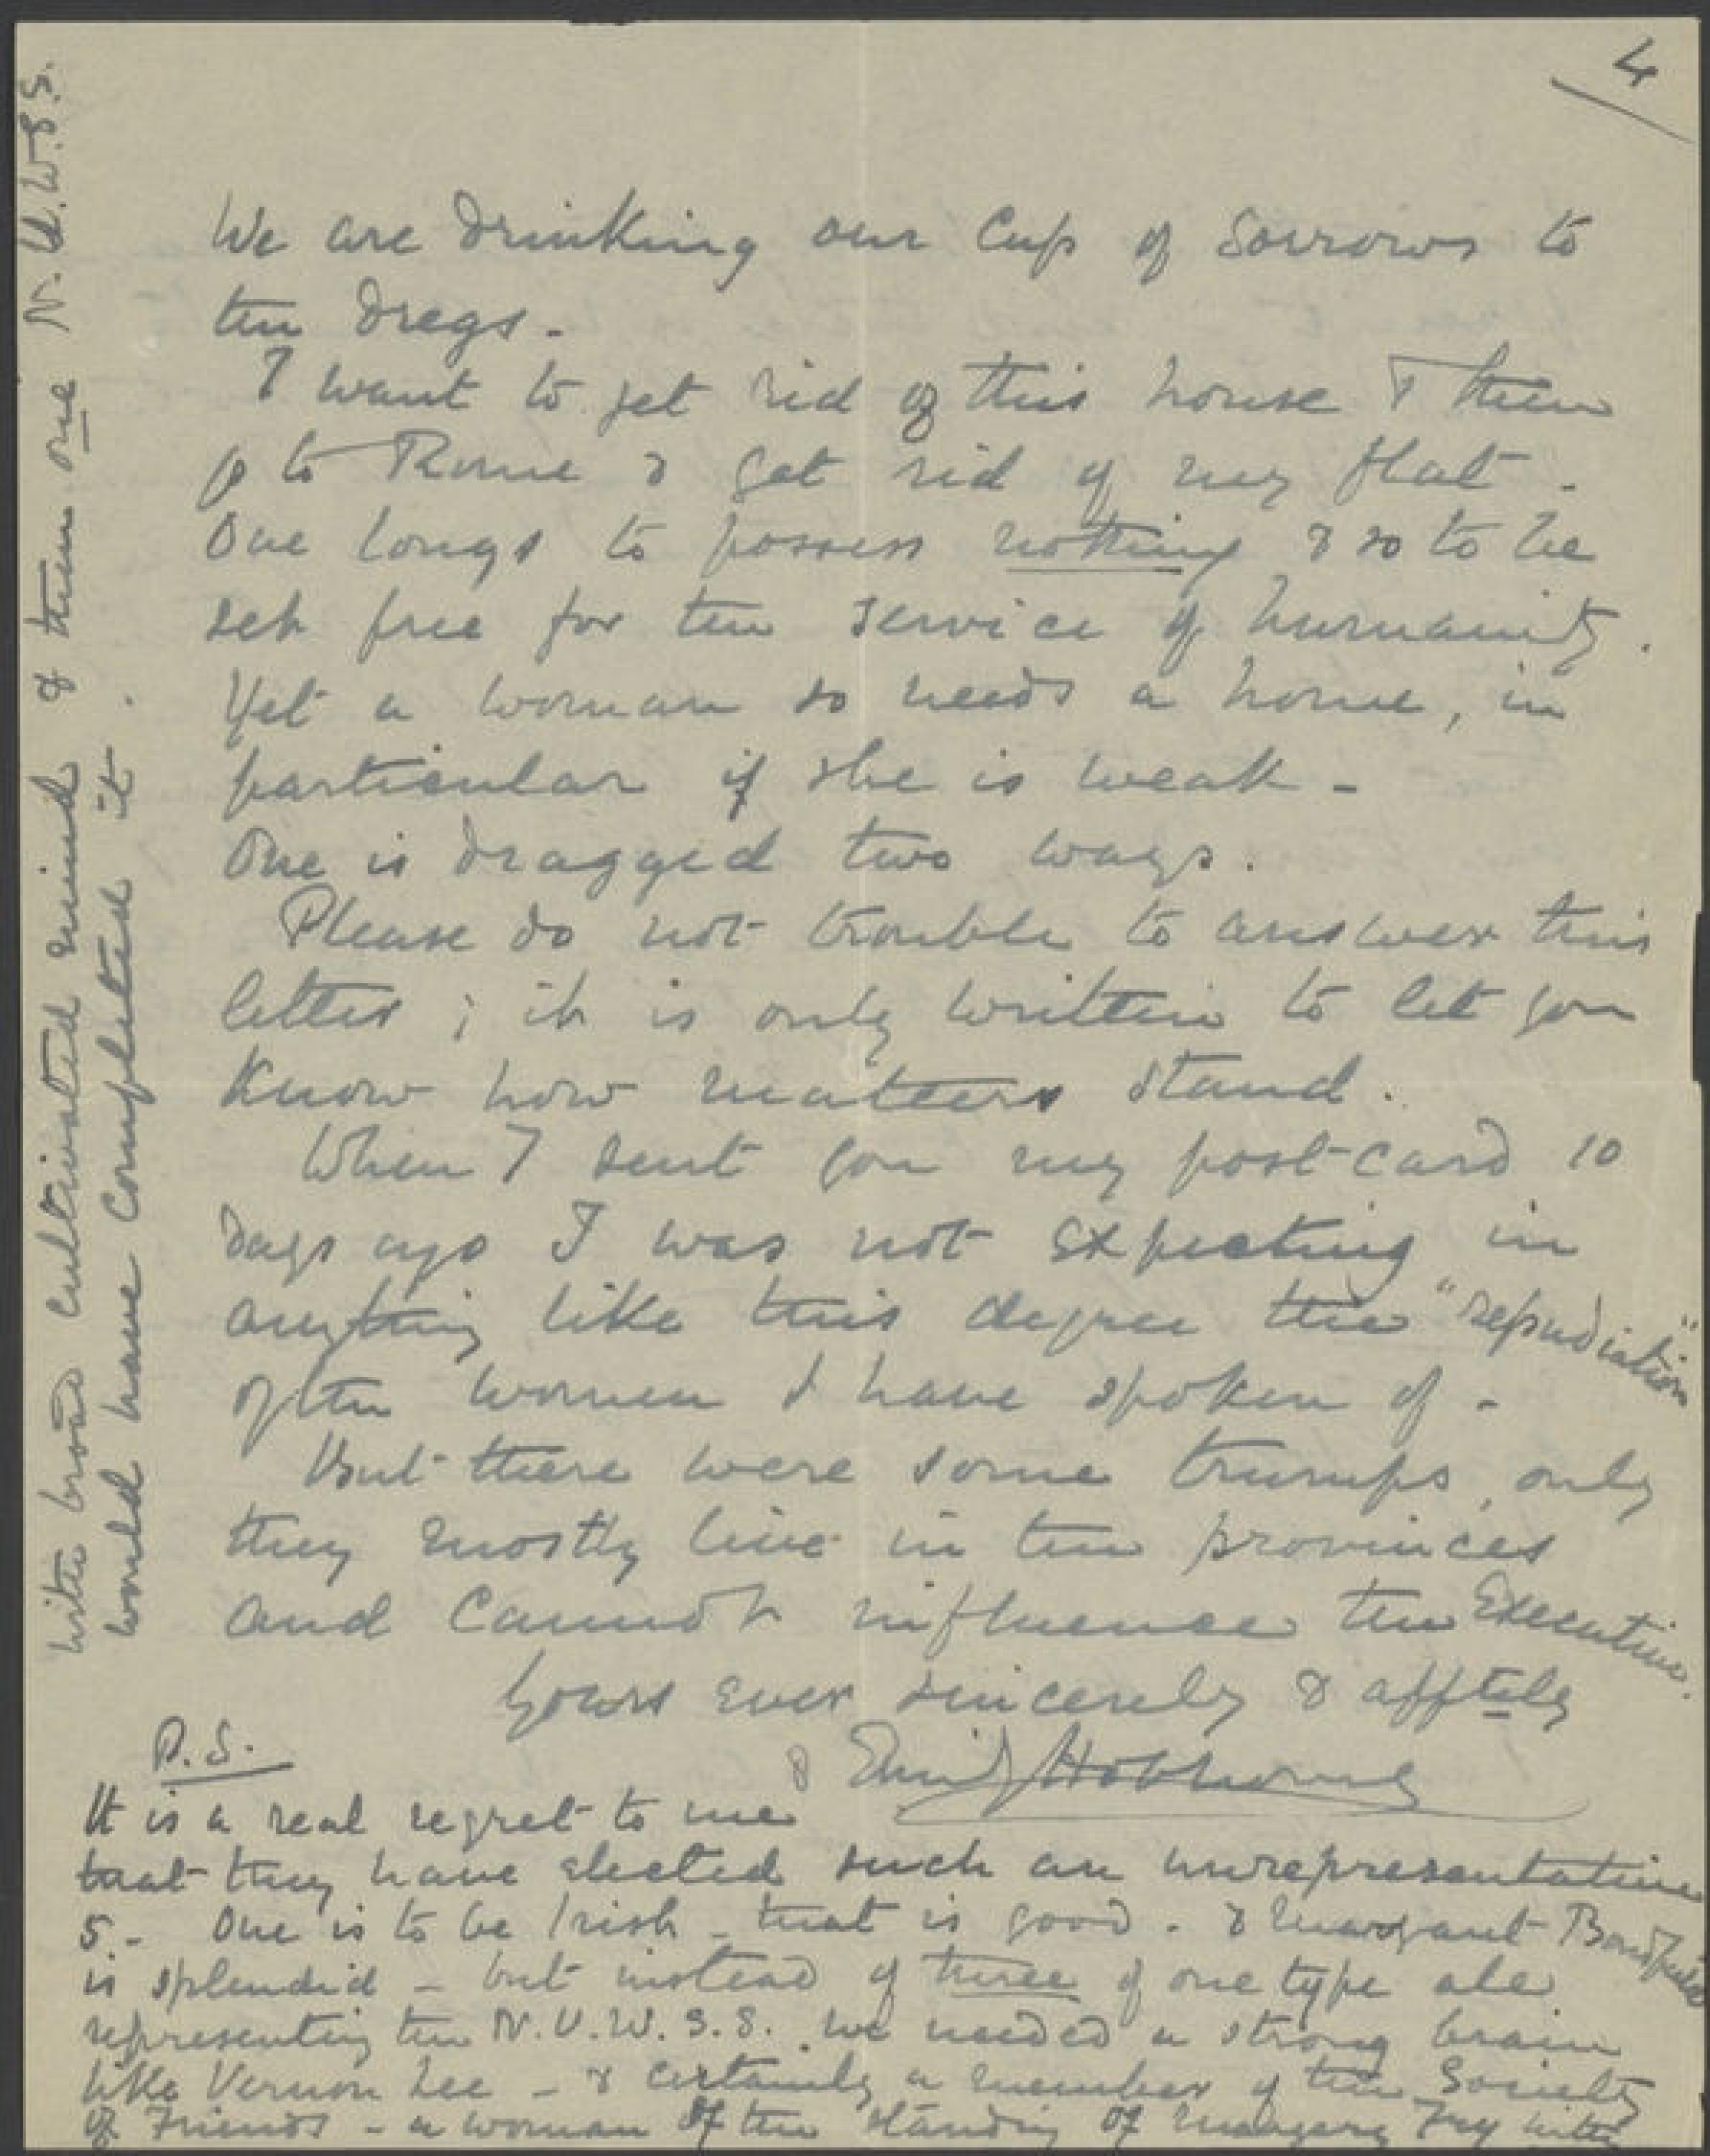 4
We are drinking our Cup of Sorrows to
the dregs -
I want to get rid of this house & then
go to Rome & get rid of my flat -
One longs to possess nothing & so to be
set free for the service of humanity.
Yet a woman so needs a home, in
particular if she is weak -
One is dragged two ways.
Please do not trouble to answer this
letter; it is only written to let you
Know how matters stand.
When I sent you my post-card 10
days ago I was not expecting in
anything like this degree the "repudiation"
of the women I have spoken of -
But there were some trumps, only
they mostly live in the provinces
and cannot influence the Executive.
Yours ever sincerely & afftely
Emily Hobhouse
P.S.
It is a real regret to me
that they have elected such an unrepresentative
5 - One is to be Irish - that is good - & Margaret Bondfield
is splendid - but instead of three of one type all
representing the N.U.W.S.S. we needed a strong brain
like Vernon Lee - & certainly a member of the Society
of Friends - a woman of the standing of Margery Fry with
with broad cultivated mind & then one N.U.W.S.S.
would have completed it.